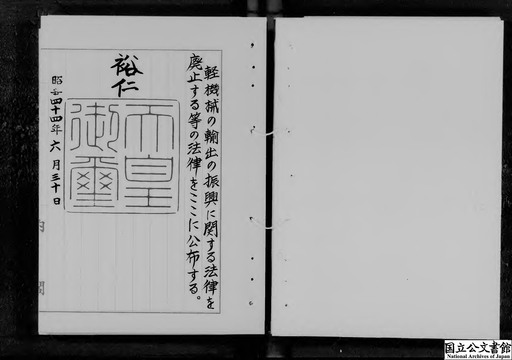 軽機械の輸出の振興に関する法律を
廃止する等の法律をここに公布する。
裕仁
天皇
御璽
昭和四十四年六月三十日
内
閣
国立公文書館
National Archives of Japan